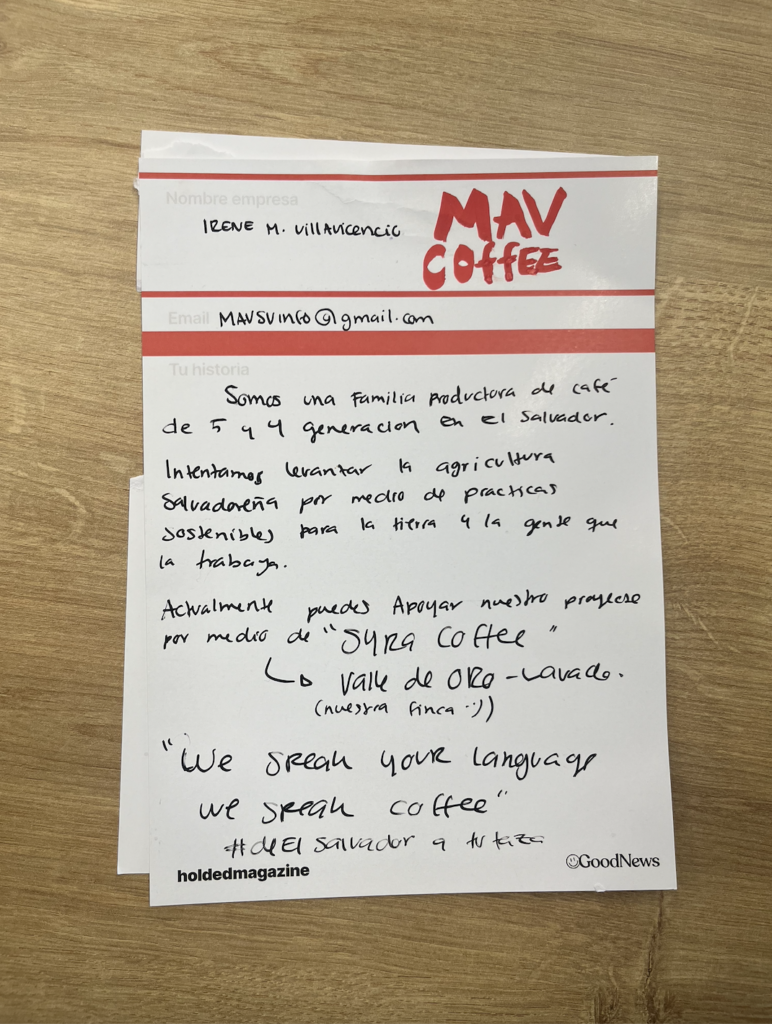 Nombre empresa
IRENE M. Villavicencio
MAV
COFFEE
Email MAVSVINFO@gmail.com
Tu historia
Somos una Familia productora de café
de 5 y 4 generacion en el Salvador.
Intentamos levantar la agricultura
Salvadoreña por medio de practicas
sostenibles para la tierra y la gente que
la trabaja.
Actualmente puedes Apoyar nuestro proyecto
por medio de "SYRA COFFEE"
↳ Valle de ORO - Lavado.
(nuestra finca :))
"We speak your language
we speak coffee"
#deEl Salvador a tu taza
holdedmagazine
GoodNews